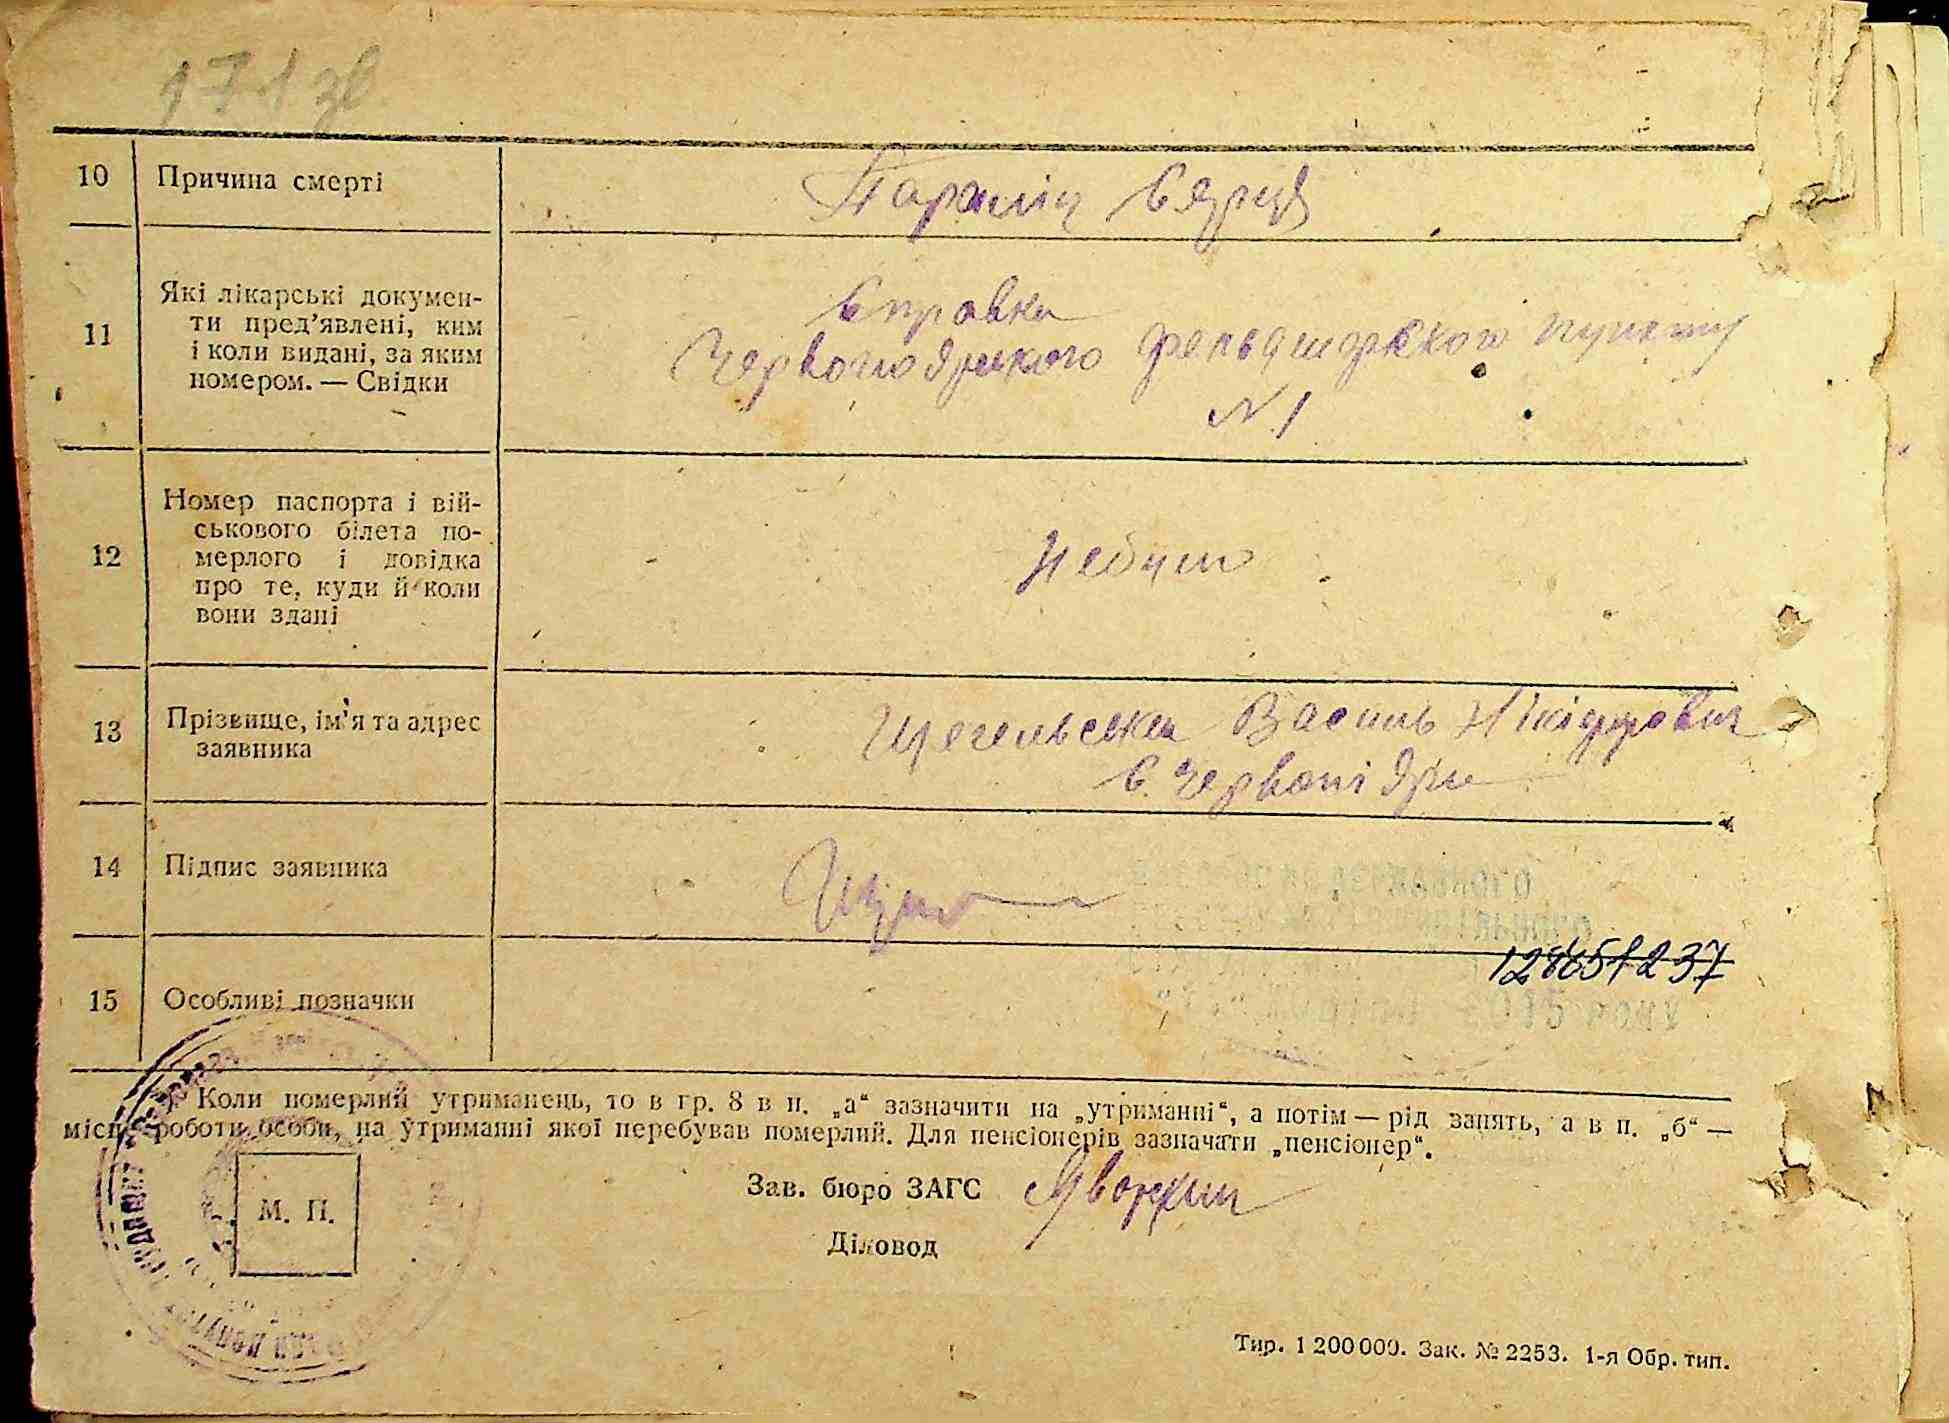 171 зв
10 Причина смерті
Параліч Сярця
11 Які лікарські докумен-
ти пред'явлені, ким
і коли видані, за яким
номером. — Свідки
Справка
Червоноярського фельдшорского пункту
N 1
12 Номер паспорта і вій-
ськового білета по-
мерлого і довідка
про те, куди й коли
вони здані
Небуло
13 Прізвище, ім'я та адрес
заявника
Василь Нікіфрович
с. Червоні Яри
14 Підпис заявника
15 Особливі позначки
Коли померлий утриманець, то в гр. 8 в п. „а“ зазначити на „утриманні“, а потім — рід занять, а в п. „б“ —
місце роботи особи, на утриманні якої перебував померлий. Для пенсіонерів зазначати „пенсіонер“.
Зав. бюро ЗАГС
М. П.
Діловод
Тир. 1 200 000. Зак. № 2253. 1-я Обр. тип.